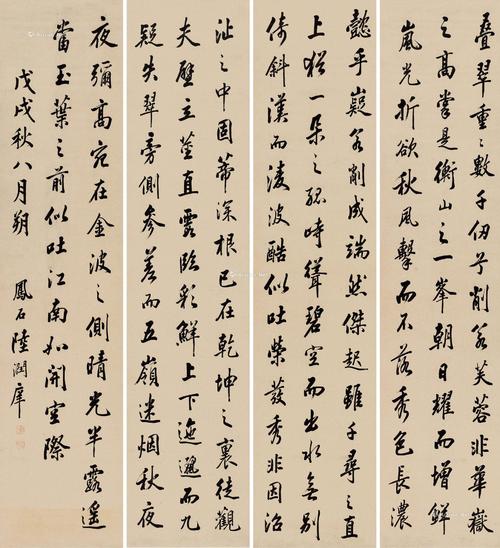 叠翠重〻数千仞兮削若芙蓉非華嶽
之高掌是衡山之一峯朝日耀而增鮮
嵐光折欲秋風擊而不落秀色長濃
懿乎嶷若削成端然傑起雖千尋之直
上猶一朵之孤時聳碧空而出水無別
倚斜漢而淩波酷似吐榮發秀非因沼
沚之中固蒂深根已在乾坤之裏徒觀
夫壁立莖直露臨彩鮮上下迤邐而九
疑失翠旁側參差而五嶺迷烟秋夜
夜彌高宛在金波之側晴光半露遥
當玉葉之前似吐江南如開空際
戊戌秋八月朔
鳳石陸潤庠